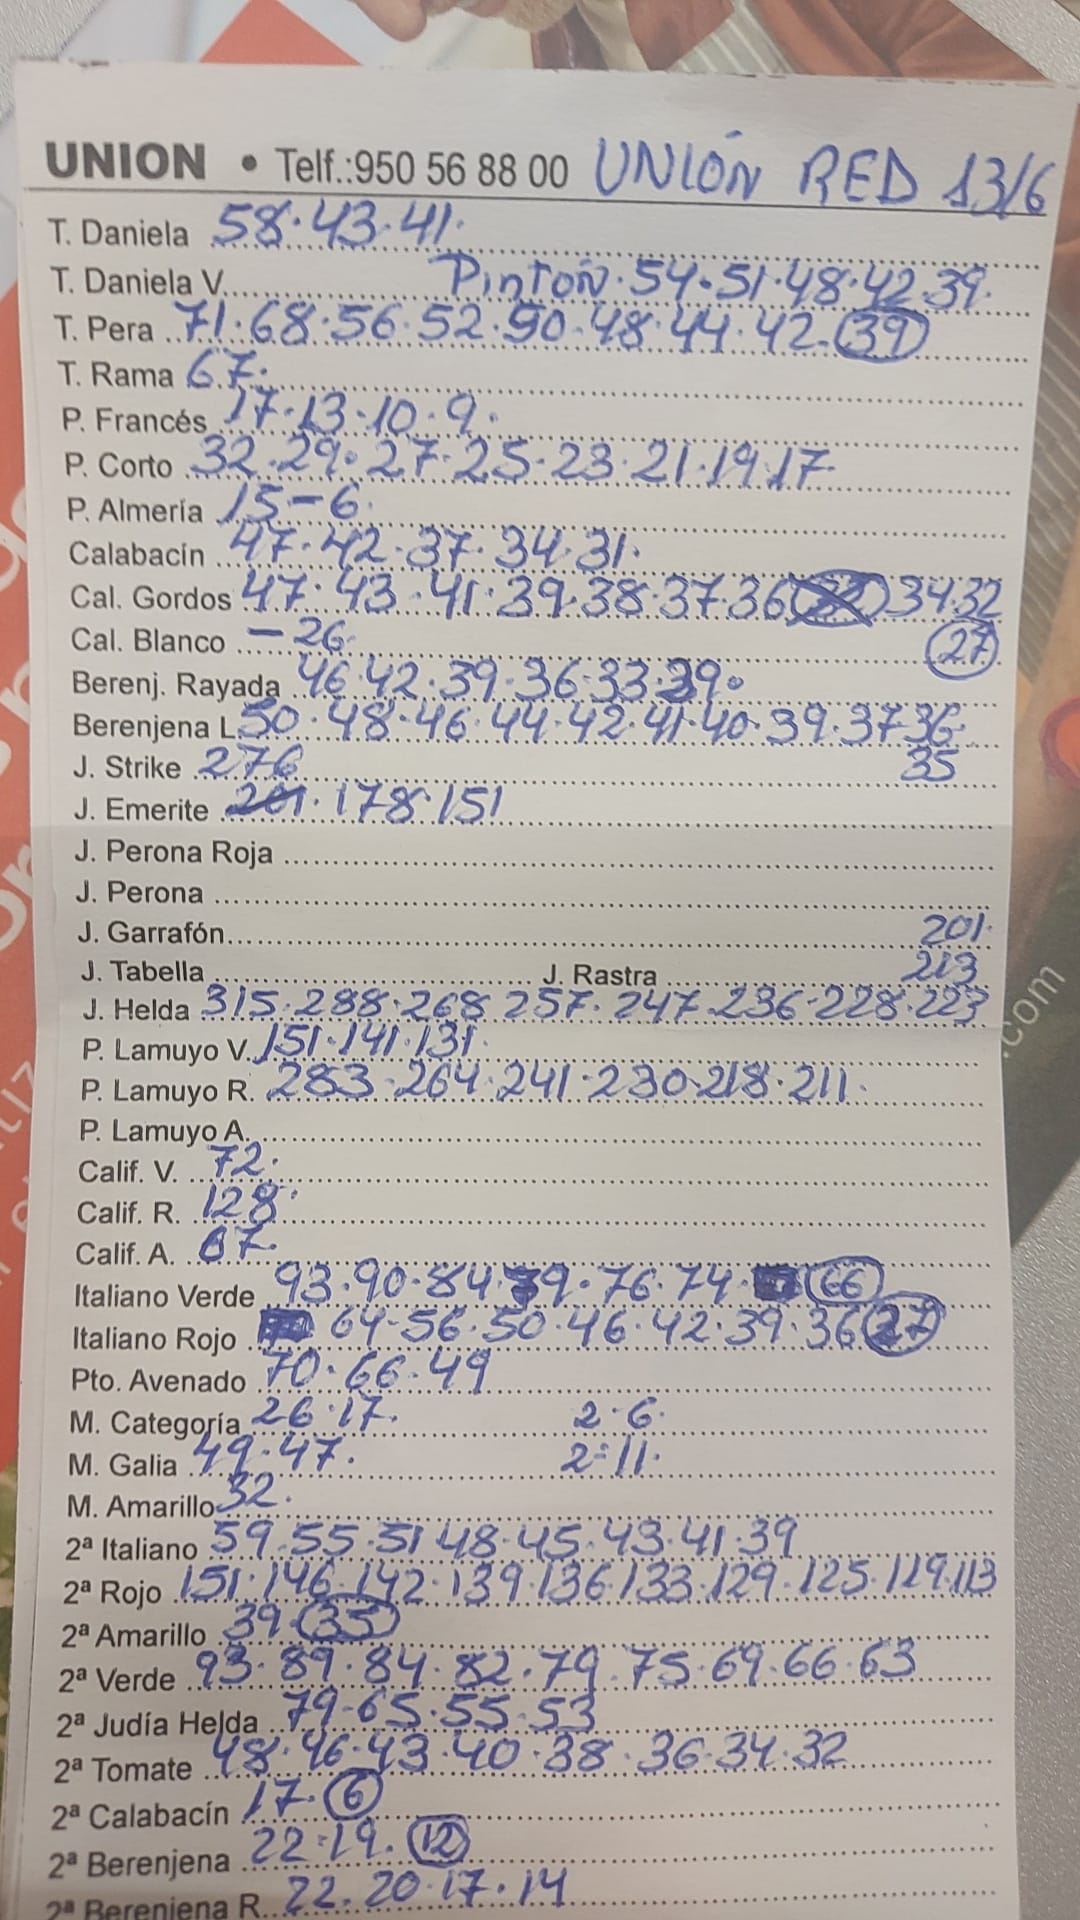 UNION • Telf.:950 56 88 00 UNIÓN RED 13/6
T. Daniela 58·43·41·
T. Daniela V. Pintón·54·51·48·42·39·
T. Pera 71·68·56·52·50·48·44·42·39
T. Rama 67·
P. Francés 17·13·10·9·
P. Corto 32·29·27·25·23·21·19·17
P. Almería 15-6·
Calabacín 47·42·37·34·31·
Cal. Gordos 47·43·41·39·38·37·36 34·32
Cal. Blanco -26· 27
Berenj. Rayada 46·42·39·36·33·
Berenjena L 50·48·46·44·42·41·40·39·37 36·
J. Strike 276 35
J. Emerite 201·178·151
J. Perona Roja
J. Perona
J. Garrafón 201·
J. Tabella J. Rastra 213
J. Helda 315·288·268 257·247·236·228·223
P. Lamuyo V. 151·141·131·
P. Lamuyo R. 283·264·241·230·218·211·
P. Lamuyo A.
Calif. V. 72·
Calif. R. 128·
Calif. A. 67·
Italiano Verde 93·90·84·79·76·74· 66
Italiano Rojo 64·56·50·46·42·39·36 27
Pto. Avenado 70·66·49
M. Categoría 26·17· 2·6·
M. Galia 49·47· 2=11·
M. Amarillo 32·
2ª Italiano 59·55·51 48·45·43·41·39
2ª Rojo 151·146·142·139·136·133·129·125·119·113
2ª Amarillo 39·35
2ª Verde 93·89·84·82·79·75·69·66·63
2ª Judía Helda 79·65·55·53
2ª Tomate 48·46·43·40·38·36·34·32
2ª Calabacín 17·6
2ª Berenjena 22·19·12
2ª Berenjena R. 22·20·17·14
.com